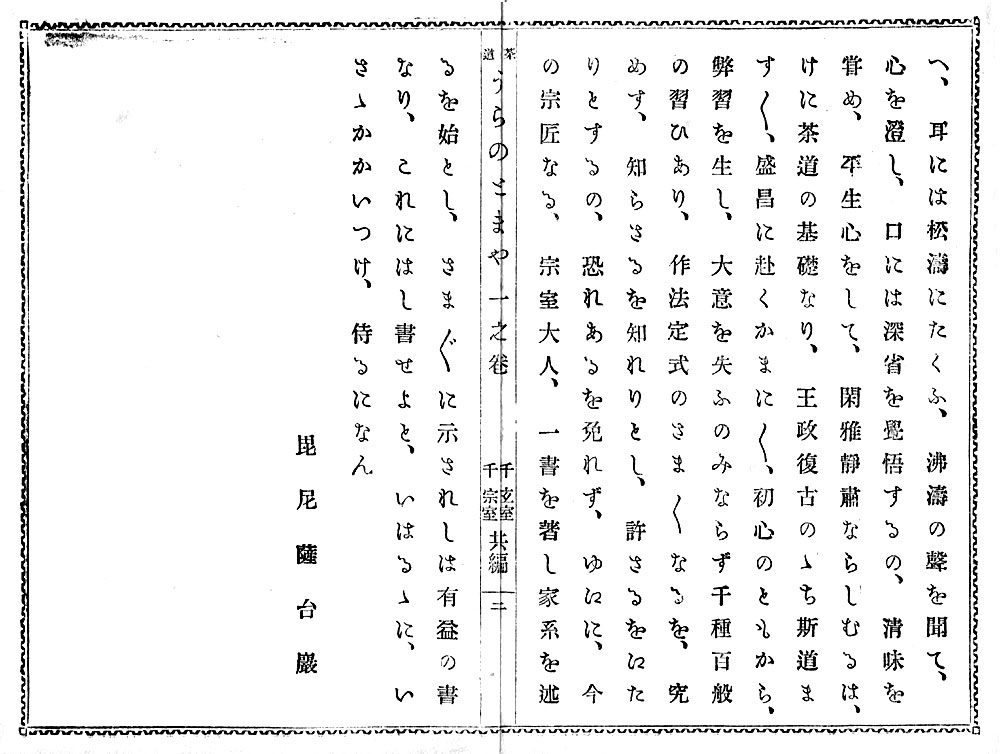 へ、耳には松濤にたくふ、沸濤の聲を聞て、
心を澄し、口には深省を覺悟するの、清味を
甞め、平生心をして、閑雅靜肅ならしむるは、
けに茶道の基礎なり、王政復古のゝち斯道ま
す〱、盛昌に赴くかまに〱、初心のともから、
弊習を生し、大意を失ふのみならず千種百般
の習ひあり、作法定式のさま〱なるを、究
めす、知らさるを知れりとし、許さるをゆた
りとするの、恐れあるを免れず、ゆゑに、今
の宗匠なる、宗室大人、一書を著し家系を述
茶道 うらのとまや 一之卷 千玄室 千宗室 共編 二
るを始とし、さま〲に示されしは有益の書
なり、これにはし書せよと、いはるゝに、い
さゝかかいつけ、侍るになん
毘尼薩台巖